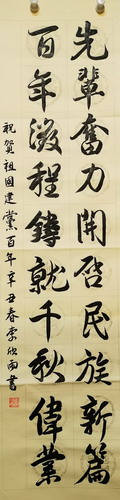 先輩奮力開啓民族新篇
百年征程鑄就千秋偉業
祝賀祖國建黨百年辛丑春李欣雨書